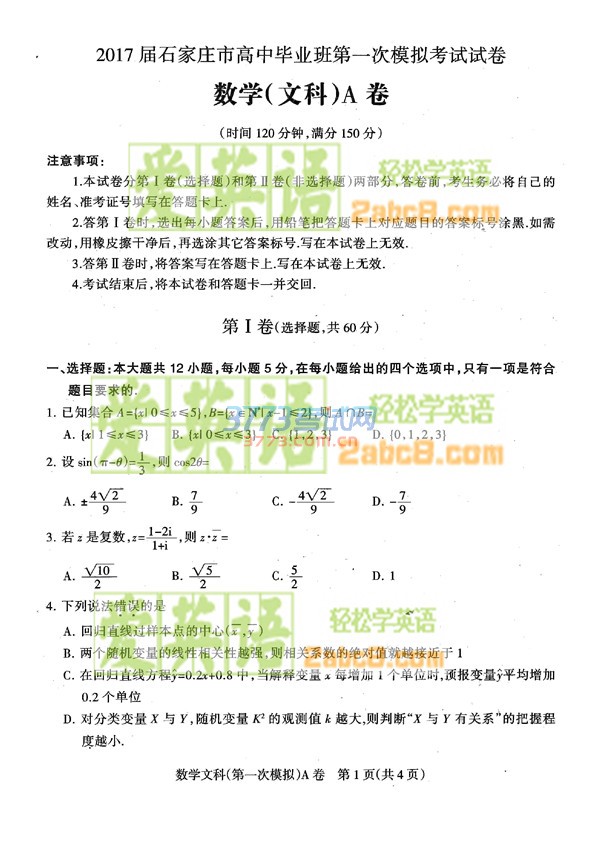 2017届石家庄市高中毕业班第一次模拟考试试卷
数学(文科)A 卷
(时间 120 分钟,满分 150 分)
注意事项:
1.本试卷分第Ⅰ卷(选择题)和第Ⅱ卷(非选择题)两部分,答卷前,考生务必将自己的
姓名、准考证号填写在答题卡上.
2.答第Ⅰ卷时,选出每小题答案后,用铅笔把答题卡上对应题目的答案标号涂黑.如需
改动,用橡皮擦干净后,再选涂其它答案标号.写在本试卷上无效.
3.答第Ⅱ卷时,将答案写在答题卡上.写在本试卷上无效.
4.考试结束后,将本试卷和答题卡一并交回.
第Ⅰ卷(选择题,共 60 分)
一、选择题:本大题共 12 小题,每小题 5 分,在每小题给出的四个选项中,只有一项是符合
题目要求的.
1. 已知集合 A={x|0≤x≤5},B={x∈N*|x-1≤2},则 A∩B=
A. {x|1≤x≤3} B. {x|0≤x≤3} C. {1,2,3} D. {0,1,2,3}
2. 设 sin(π-θ)=1/3,则 cos2θ=
A. ±4√2/9 B. 7/9 C. -4√2/9 D. -7/9
3. 若 z 是复数,z=(1-2i)/(1+i),则 z·z̄=
A. √10/2 B. √5/2 C. 5/2 D. 1
4. 下列说法错误的是
A. 回归直线过样本点的中心(x̄,ȳ)
B. 两个随机变量的线性相关性越强,则相关系数的绝对值就越接近于 1
C. 在回归直线方程ŷ=0.2x+0.8 中,当解释变量 x 每增加 1 个单位时,预报变量ŷ平均增加
0.2 个单位
D. 对分类变量 X 与 Y,随机变量 K² 的观测值 k 越大,则判断“X 与 Y 有关系”的把握程
度越小.
数学文科(第一次模拟)A 卷 第 1 页(共 4 页)
爱英语
轻松学英语
2abc8.com
3773考试网
3773.com.cn
爱英语
轻松学英语
2abc8.com
爱英语
轻松学英语
2abc8.com